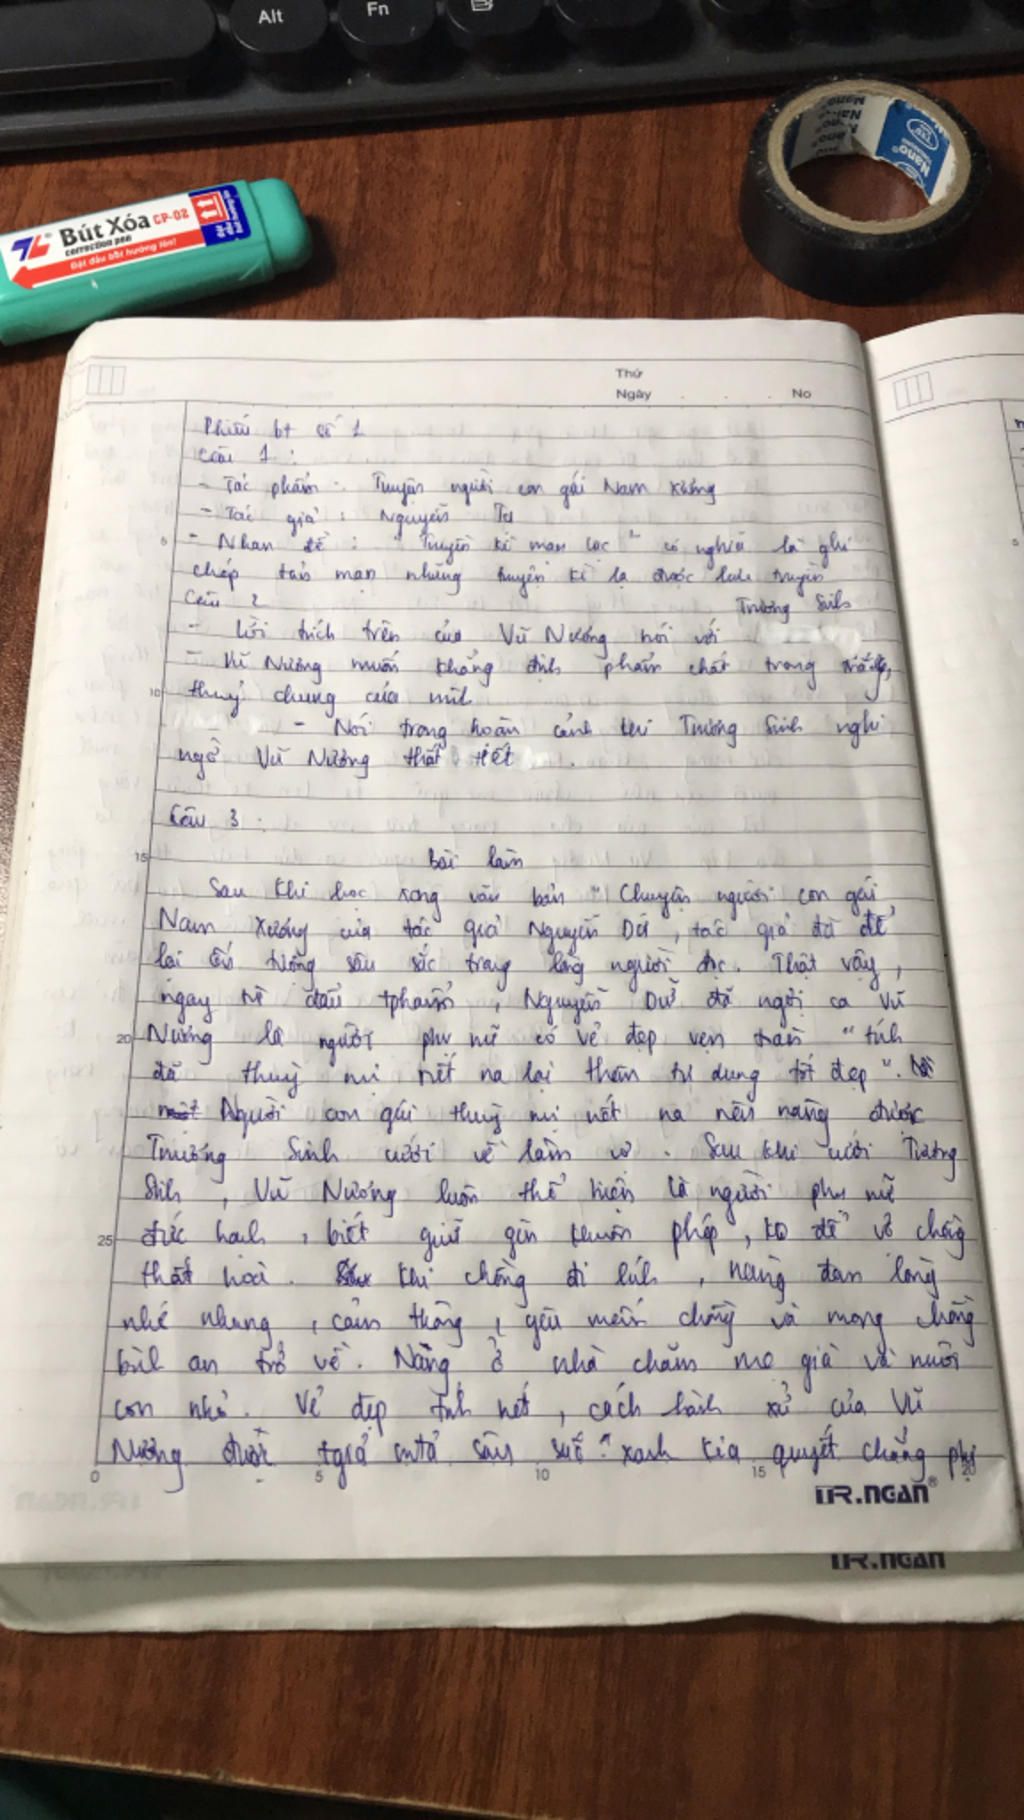 Alt
Fn
Nano
Bút Xóa CP-02
correction pen
Đặt đầu bút hướng lên!
Thứ
Ngày . . . No
Phiếu bt số 1
Câu 1 :
- Tác phẩm : Truyện người con gái Nam Xương
- Tác giả : Nguyễn Dữ
- Nhan đề : " Truyền kì mạn lục " có nghĩa là ghi
chép tản mạn những truyện kì lạ được lưu truyền
Câu 2
Trương Sinh
- Lời trích trên của Vũ Nương nói với
- Vũ Nương muốn khẳng định phẩm chất trong trắng,
thuỷ chung của mình
- Nói trong hoàn cảnh khi Trương Sinh nghi
ngờ Vũ Nương thất tiết .
Câu 3 :
bài làm
Sau khi học xong văn bản " Chuyện người con gái
Nam Xương của tác giả Nguyễn Dữ , tác giả đã để
lại ấn tượng sâu sắc trong lòng người đọc. Thật vậy,
ngay từ đầu tphẩm , Nguyễn Dữ đã ngợi ca Vũ
Nương là người phụ nữ có vẻ đẹp vẹn toàn " tính
đã thuỳ mị nết na lại thêm tư dung tốt đẹp ".
Người con gái thuỳ mị nết na nên nàng được
Trương Sinh cưới về làm vợ . Sau khi cưới Trương
Sinh , Vũ Nương luôn thể hiện là người phụ nữ
đức hạnh , biết giữ gìn khuôn phép , ko để vợ chồng
thất hoà . khi chồng đi lính , nàng đan lòng
nhớ nhung , cảm thông , yêu mến chồng và mong chồng
bình an trở về. Nàng ở nhà chăm mẹ già và nuôi
con nhỏ . Vẻ đẹp tính nết , cách hành xử của Vũ
Nương được tgiả mtả sâu sắc " xanh kia quyết chẳng phụ
0 5 10 15 20
5
10
15
20
25
TR.NGAN®
TR.NGAN